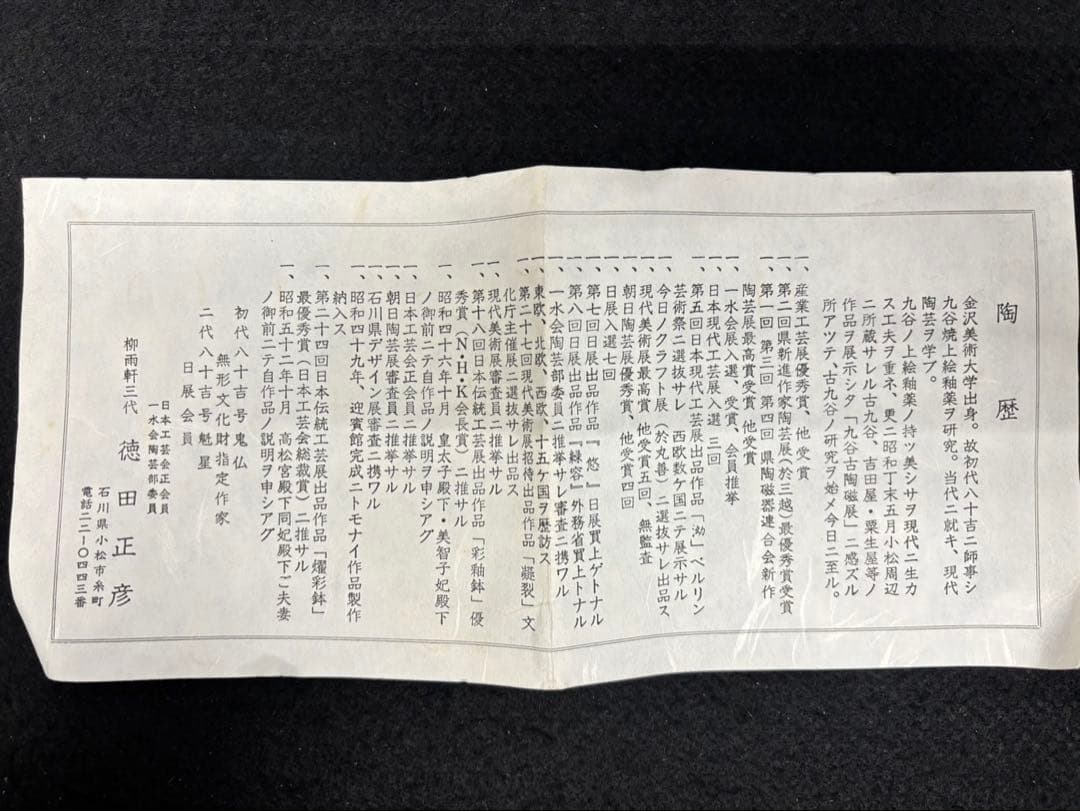 陶歴
金沢美術大学出身。故初代八十吉ニ師事シ
九谷焼上絵釉薬ヲ研究。当代ニ就キ、現代
陶芸ヲ学ブ。
九谷ノ上絵釉薬ノ持ツ美シサヲ現代ニ生カ
ス工夫ヲ重ネ、更ニ昭和丁末五月小松周辺
ニ所蔵サレル古九谷、吉田屋・粟生屋等ノ
作品ヲ展示シタ「九谷古陶磁展」ニ感ズル
所アツテ、古九谷ノ研究ヲ始メ今日ニ至ル。
一、産業工芸展優秀賞、他受賞
一、第二回県新進作家陶芸展(於三越)最優秀賞受賞
一、第一回 第三回 第四回 県陶磁器連合会新作
陶芸展最高賞受賞 他受賞
一、一水会展入選、受賞、会員推挙
一、日本現代工芸展入選 三回
一、第五回日本現代工芸展出品作品「泑」ベルリン
芸術祭ニ選抜サレ 西欧数ケ国ニテ展示サル
一、今日ノクラフト展(於丸善)ニ選抜サレ出品ス
一、現代美術展最高賞、他受賞五回、無監査
一、朝日陶芸展優秀賞、他受賞四回
一、日展入選七回
一、第七回日展出品作品『悠』日展買上ゲトナル
一、第八回日展出品作品『緑容』外務省買上トナル
一、一水会陶芸部委員ニ推挙サレ審査ニ携ワル
一、東欧、北欧、西欧、十五ケ国ヲ歴訪ス
一、第二十七回現代美術展招待出品作品「凝裂」文
化庁主催展ニ選抜サレ出品ス
一、現代美術展審査員ニ推挙サル
一、第十八回日本伝統工芸展出品作品「彩釉鉢」優
秀賞(N・H・K会長賞)ニ推サル
一、昭和四十六年十月 皇太子殿下・美智子妃殿下
ノ御前ニテ自作品ノ説明ヲ申シアグ
一、日本工芸会正会員ニ推挙サル
一、朝日陶芸展審査員ニ推挙サル
一、石川県デザイン展審査ニ携ワル
一、昭和四十九年、迎賓館完成ニトモナイ作品製作
納入ス
一、第二十四回日本伝統工芸展出品作品「燿彩鉢」
最優秀賞(日本工芸会総裁賞)ニ推サル
一、昭和五十二年十月 高松宮殿下同妃殿下ご夫妻
ノ御前ニテ自作品ノ説明ヲ申シアグ
初代八十吉号鬼仏
無形文化財指定作家
二代八十吉号魁星
日展会員
日本工芸会正会員
一水会陶芸部委員
柳雨軒三代 徳田正彦
石川県小松市糸町
電話二二-〇四四三番